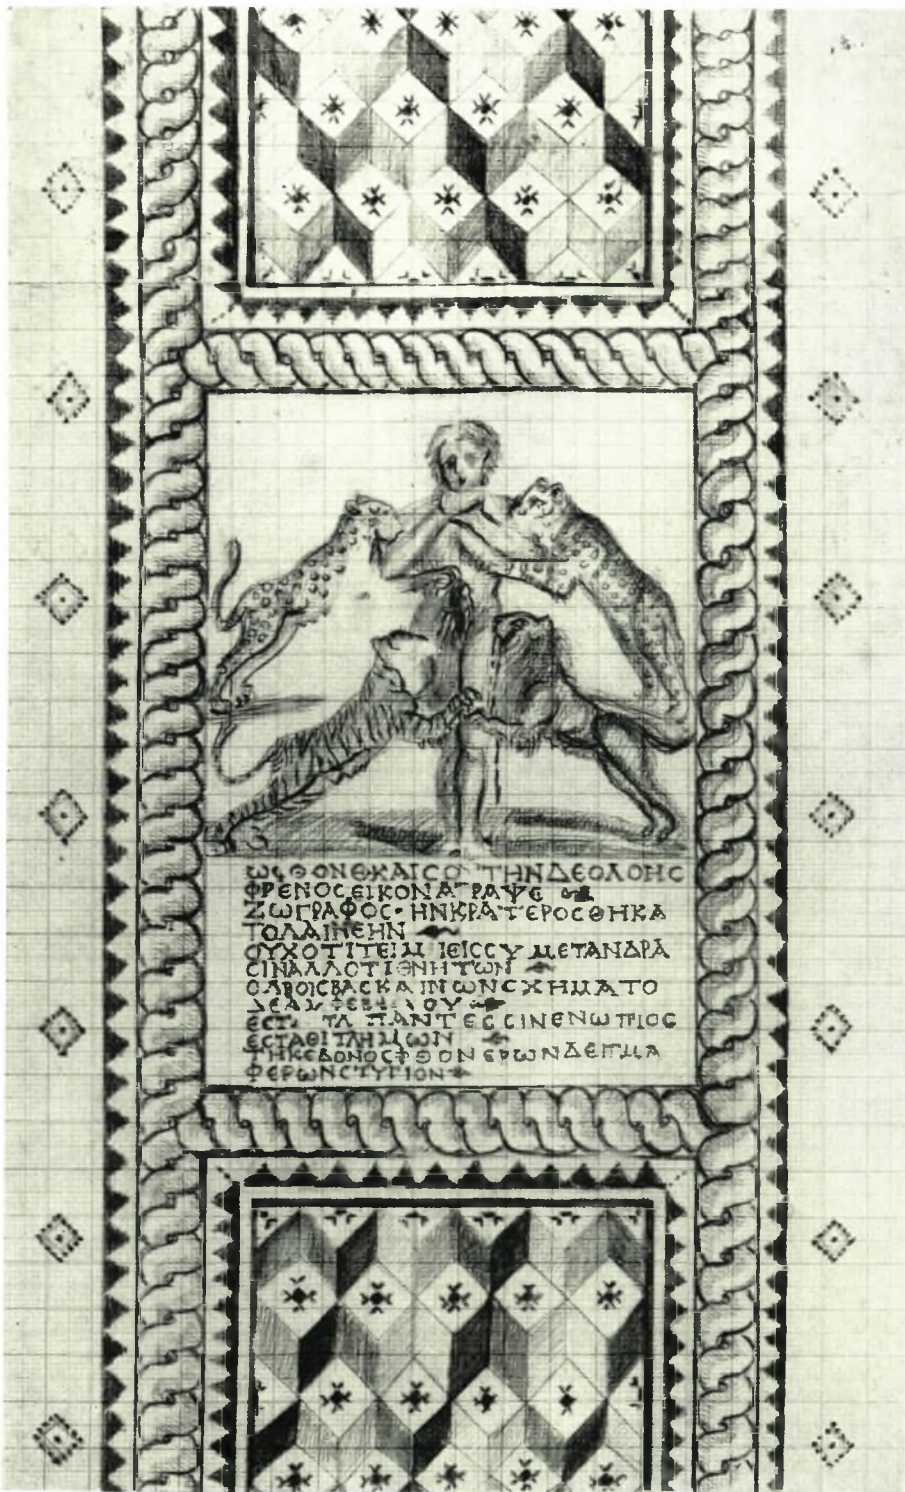 ΩϚΘΟΝΘΚΑΙCΟ ΤΗΝΔΕΟΛΟΗC
ΦΡΕΝΟCΕΙΚΟΝΑΓΡΑΨΕ
ΖΩΓΡΑΦΟC·ΗΝΚΡΑΤΕΡΟCΘΗΚΑ
ΤΟΛΑΙΝΕΗΝ
ΟΥΧΟΤΙΤΕΙΜ ΙΕΙCCΥ ΜΕΤΑΝΔΡΑ
CΙΝΑΛΛΟΤΙΘΝΗΤΩΝ
ΟΛΒΟΙCΒΑCΚΑΙΝΩΝCΧΗΜΑΤΟ
ΕCΤ ΤΑ ΠΑΝΤΕCCΙΝΕΝΩΠΙΟC
ΕCΤΑΘΙΤΛΗΜΩΝ
ΤΗΚΕΔΟΝΟCΦΘΟΝΕΡΩΝΔΕΙΓΜΑ
ΦΕΡΩΝCΤΥΓΙΟΝ